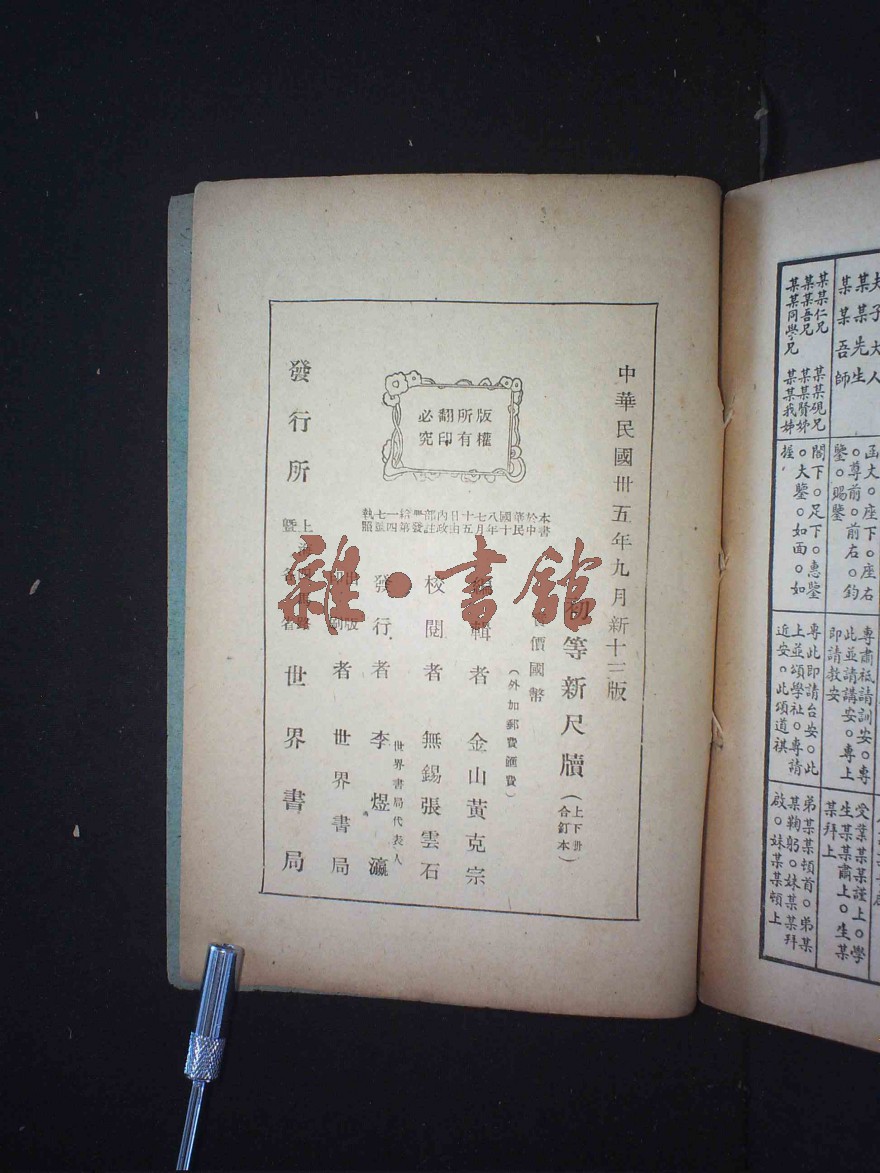 中華民國卅五年九月新十三版
初等新尺牘（上下卅合訂本）
價國幣
（外加郵費匯費）
編輯者 金山黃克宗
校閱者 無錫張雲石
世界書局代表人
發行者 李煜瀛
出版
印刷
者 世界書局
發行所 上海
暨
世界書局
版權所有翻印必究
本書於中華民國十八年十七月五日由內政部註
雜·書館
夫子大人
某某先生
某某吾師
函大。座下。座右
。尊前。前右。鈞
鑒。賜鑒
專肅祗請訓安。專
此並請講安。專上
即請教安
受業某某謹上。學
生某某肅上。生某
某拜上
某某仁兄 某某硯兄
某某吾兄 某某賢姊
某某同學兄 某某我姊
閣下。足下。惠鑒
。大鑒。如面。如
握
專此即請台安。此
上並頌學祉。專請
近安。此頌道祺
弟某某頓首。弟某
某鞠躬。妹某某拜
啟。妹某某頓上